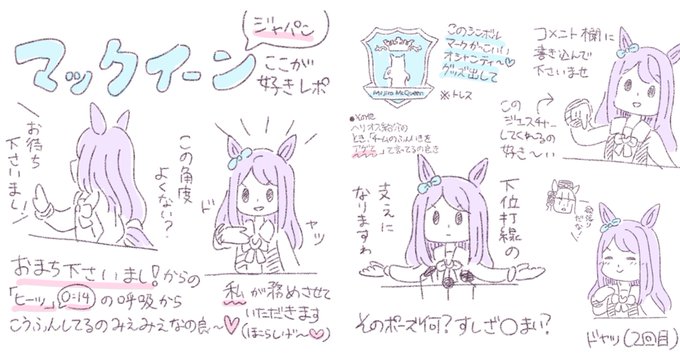 マックイーン
ジャパン
ここが
好きレポ
お待ち
下さいまし!
この角度
よくない?
ドャッ
おまち下さいまし!からの
「ヒーッ」0:14の呼吸から
こうふんしてるのみえみえなの良〜
私が務めさせて
いただきます
(ほこらしげ〜)
このシンボル
マークがかっこいい
オシャンティ〜
グッズ出して
Mejiro McQueen
※トレス
ヘリオス紹介の
とき、「チームのふんいきを
アゲて」って言ってるの良き
コメント欄に
書き込んで
下さいませ
この
ジェスチャー
してくれるの
好き〜い
下位打線の
支えに
なりますわ
そのポーズ何?すしざ〇まい?
ドャッ(2回目)